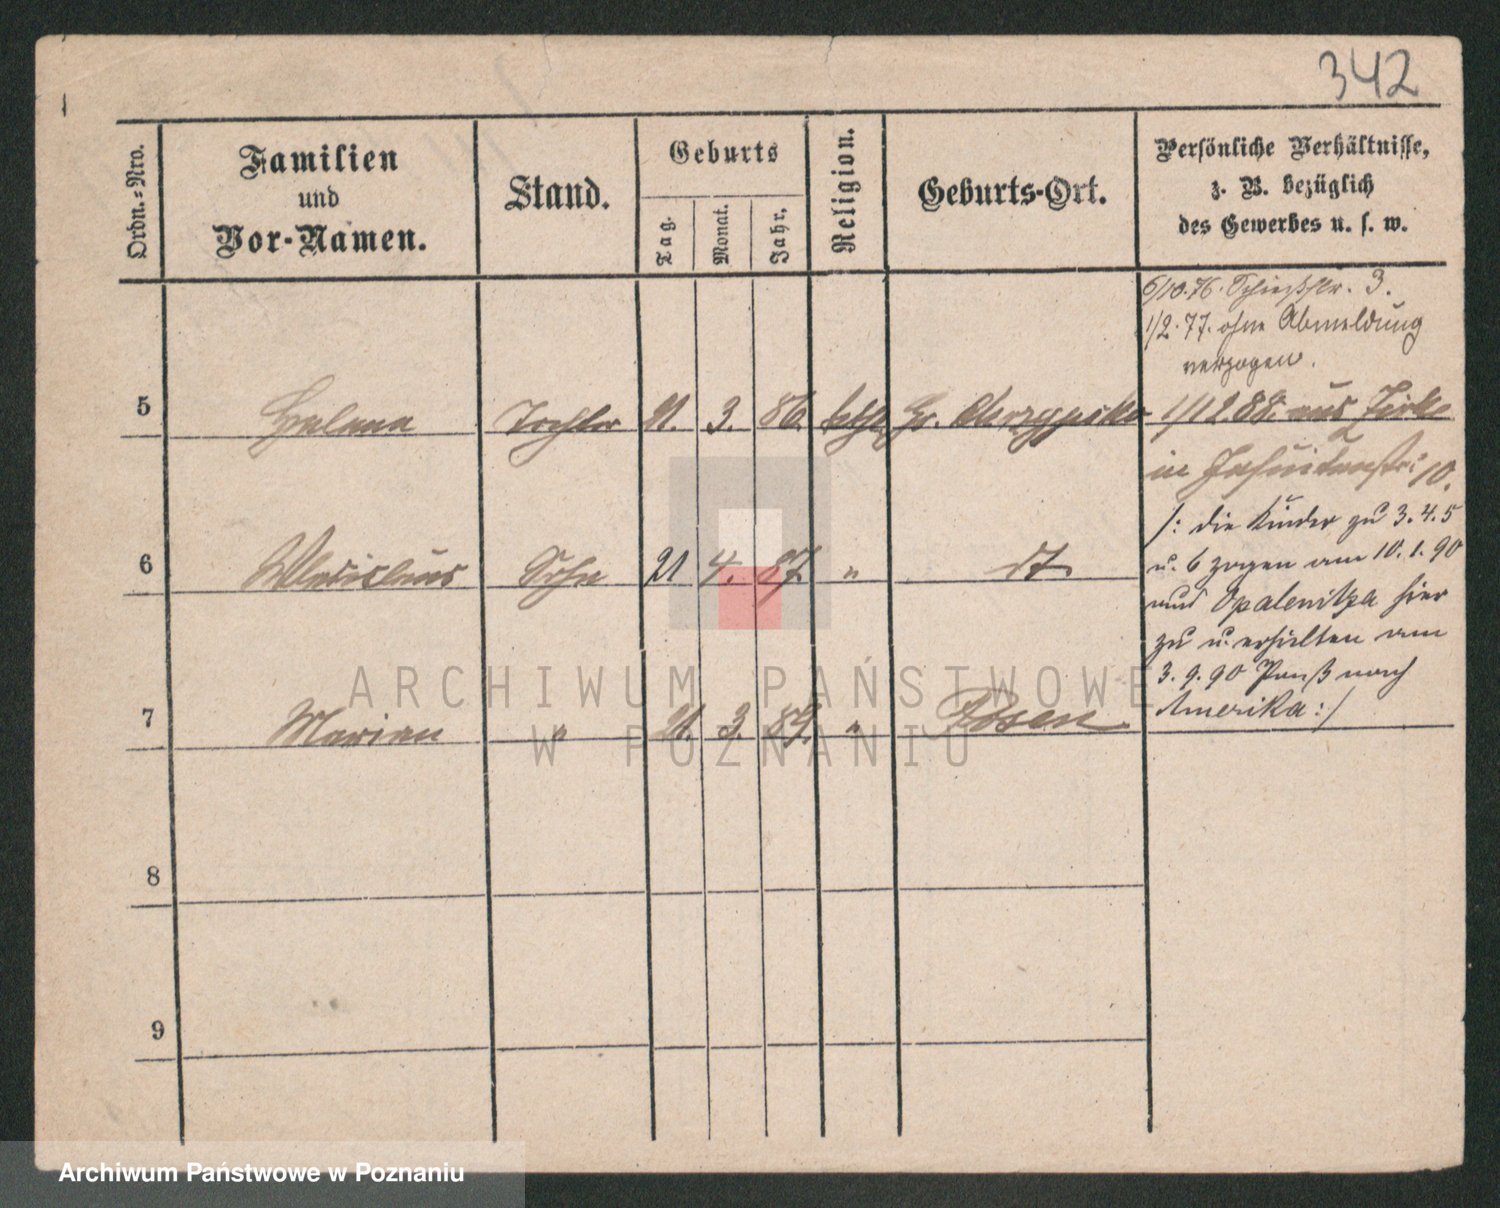 342
Ordn.-Nro.
Familien
und
Vor-Namen.
Stand.
Geburts
Tag.
Monat.
Jahr.
Religion.
Geburts-Ort.
Persönliche Verhältnisse,
z. B. bezüglich
des Gewerbes u. s. w.
6/10.76. Schießstr. 3.
1/2.77. ohne Abmeldung
verzogen.
5 Helena Tochter 21. 3. 86. kath Gr. 1/12.88. aus Zirke
in Jesuitenstr: 10.
/: die Kinder zu 3. 4. 5
6 Wladislaus Sohn 21 4. 87. " dt
u. 6 zogen am 10.1.90
aus Opalenitza hier
zu u. erhielten am
3.9.90 Paß nach
Amerika :/
7 Marian " 21. 3. 89. " Posen
8
9
ARCHIWUM PAŃSTWOWE
W POZNANIU
Archiwum Państwowe w Poznaniu